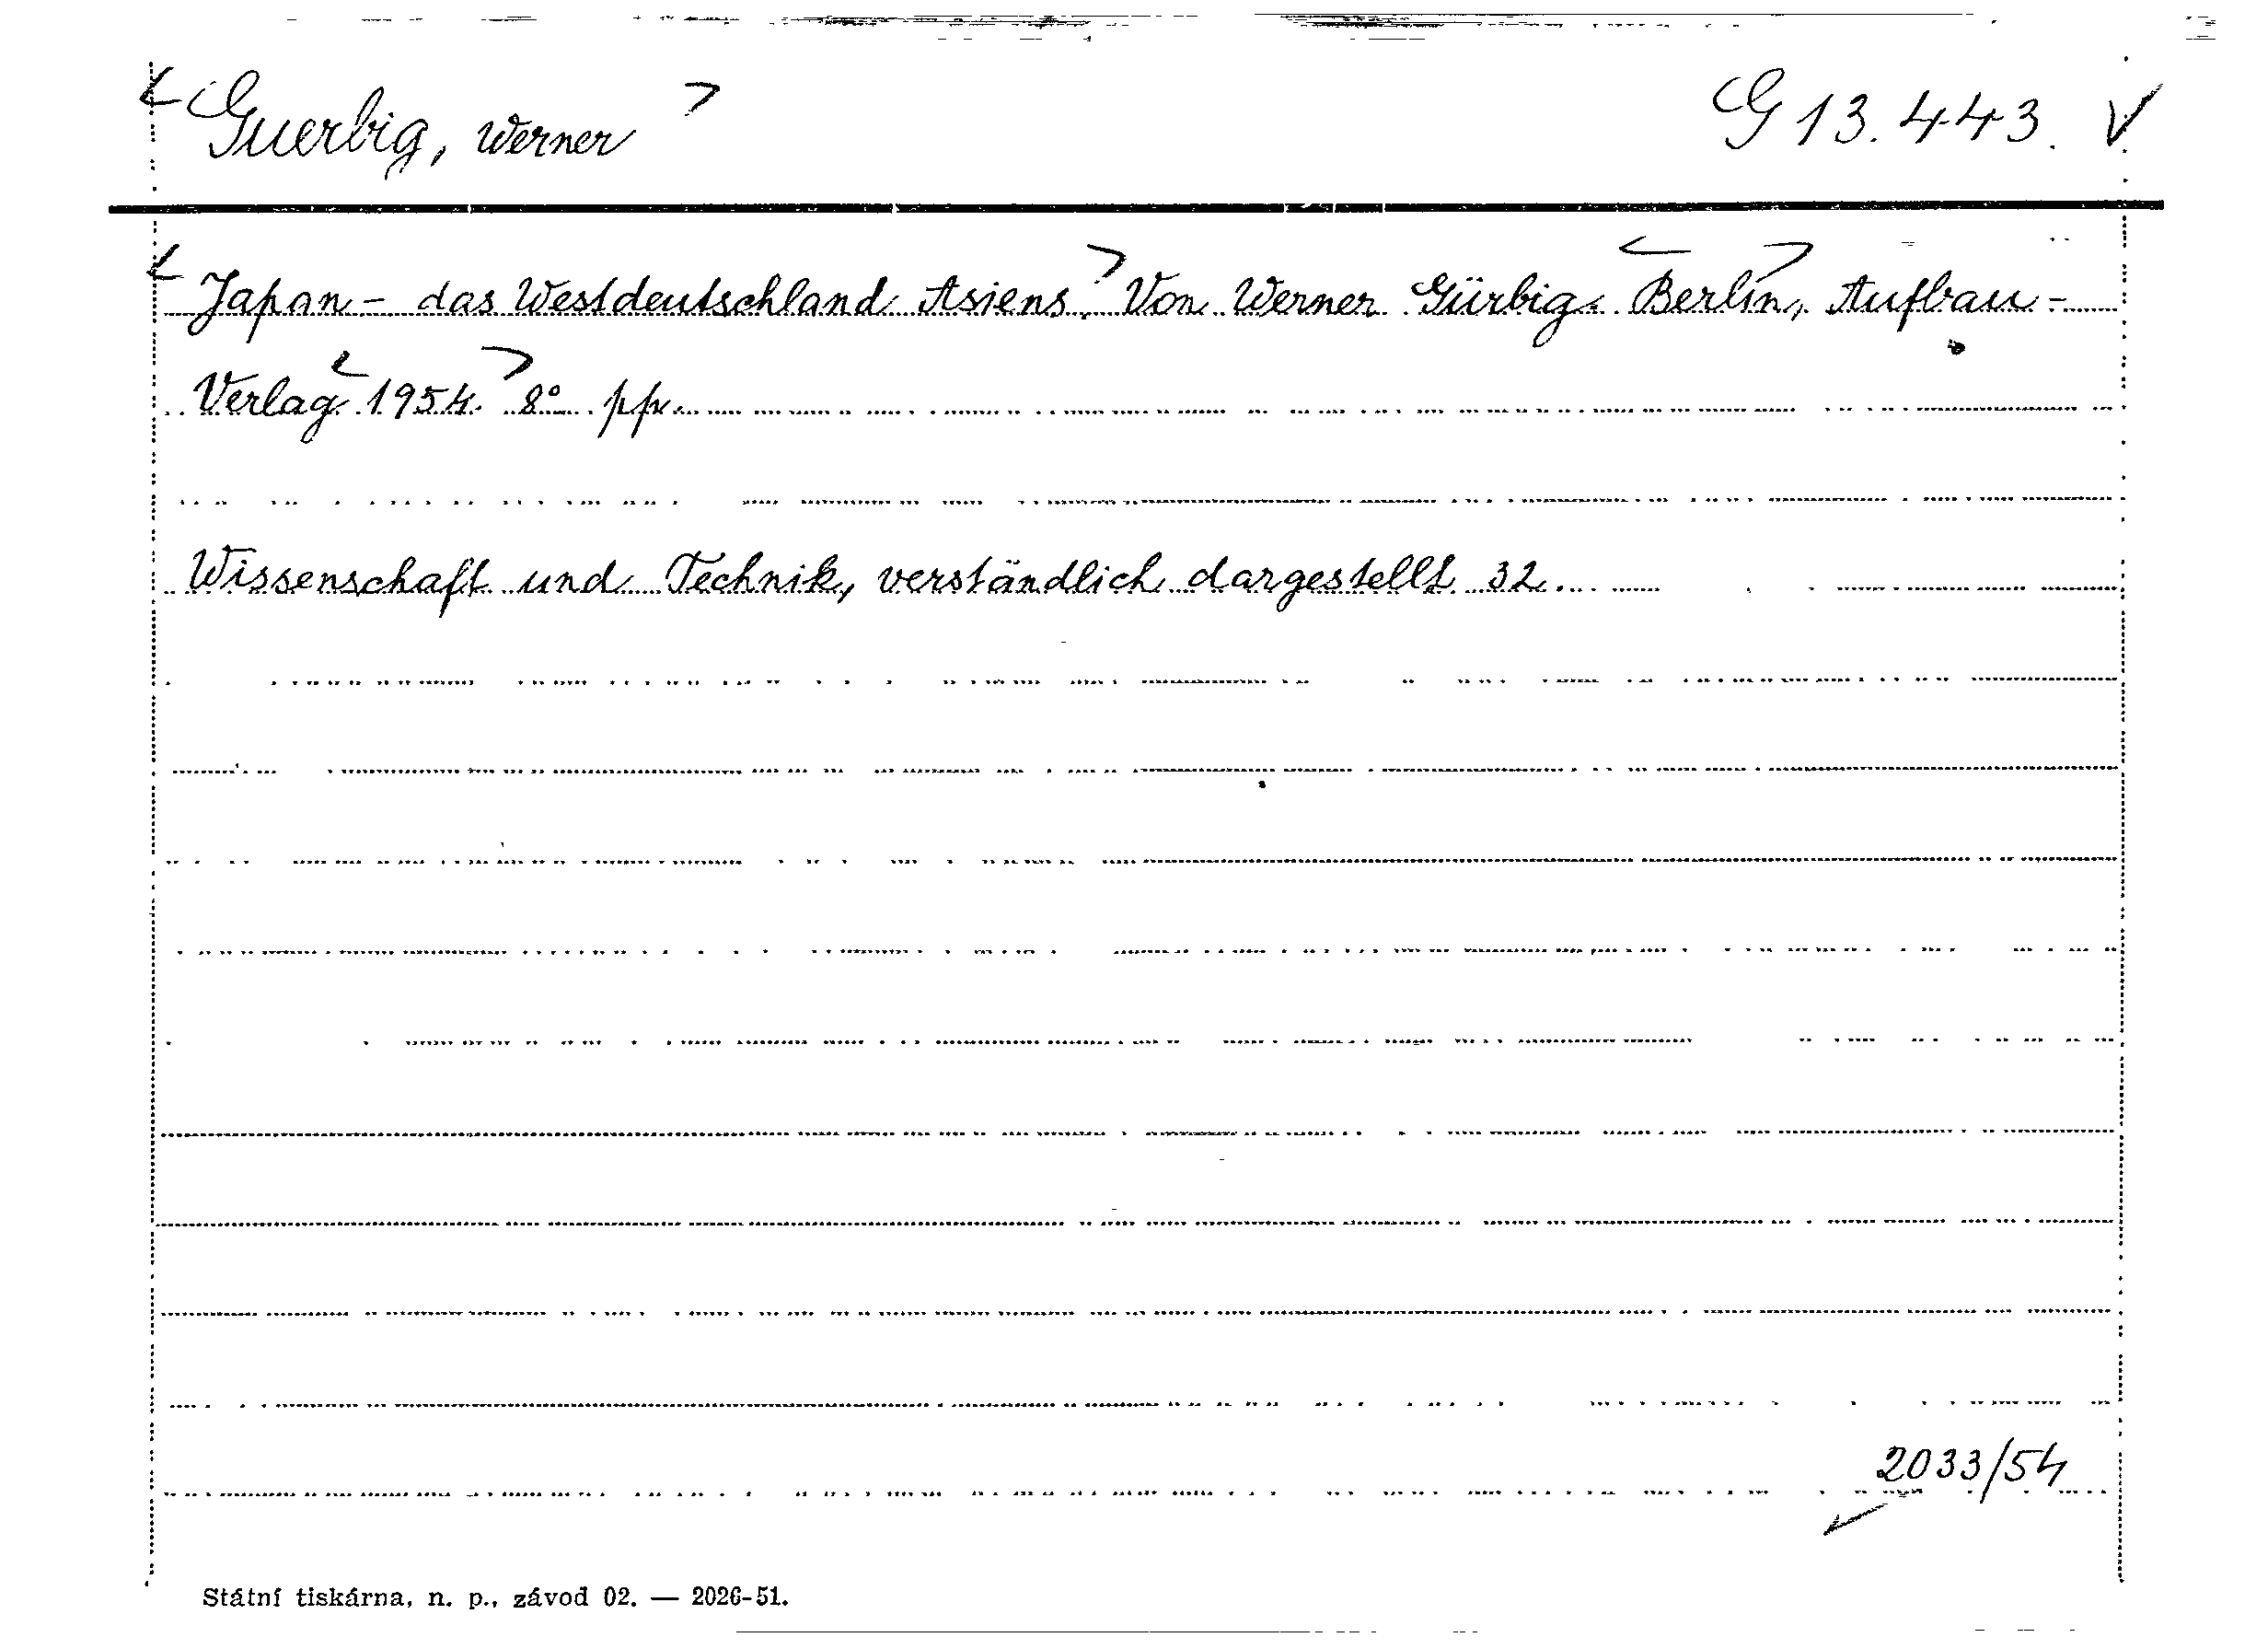 Guerbig, Werner G 13.443.
Japan - das Westdeutschland Asiens. Von Werner Gürbig. Berlin, Aufbau-
Verlag 1954. 8° pp.
Wissenschaft und Technik, verständlich dargestellt 32.
2033/54
Státní tiskárna, n. p., závod 02. — 2026-51.